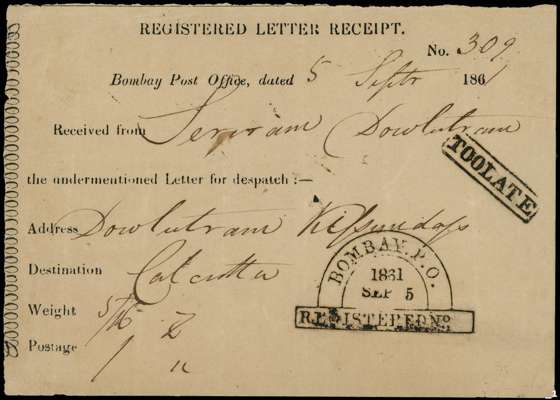 REGISTERED LETTER RECEIPT.
No. 309
Bombay Post Office, dated 5 Septr 1861
Received from Seriram Dowlutram
TOO LATE
the undermentioned Letter for despatch:—
Address Dowlutram Kissundass
Destination Calcutta
BOMBAY. P.O.
1861
SEP 5
REGISTERED No.
Weight 5/16
Postage 1